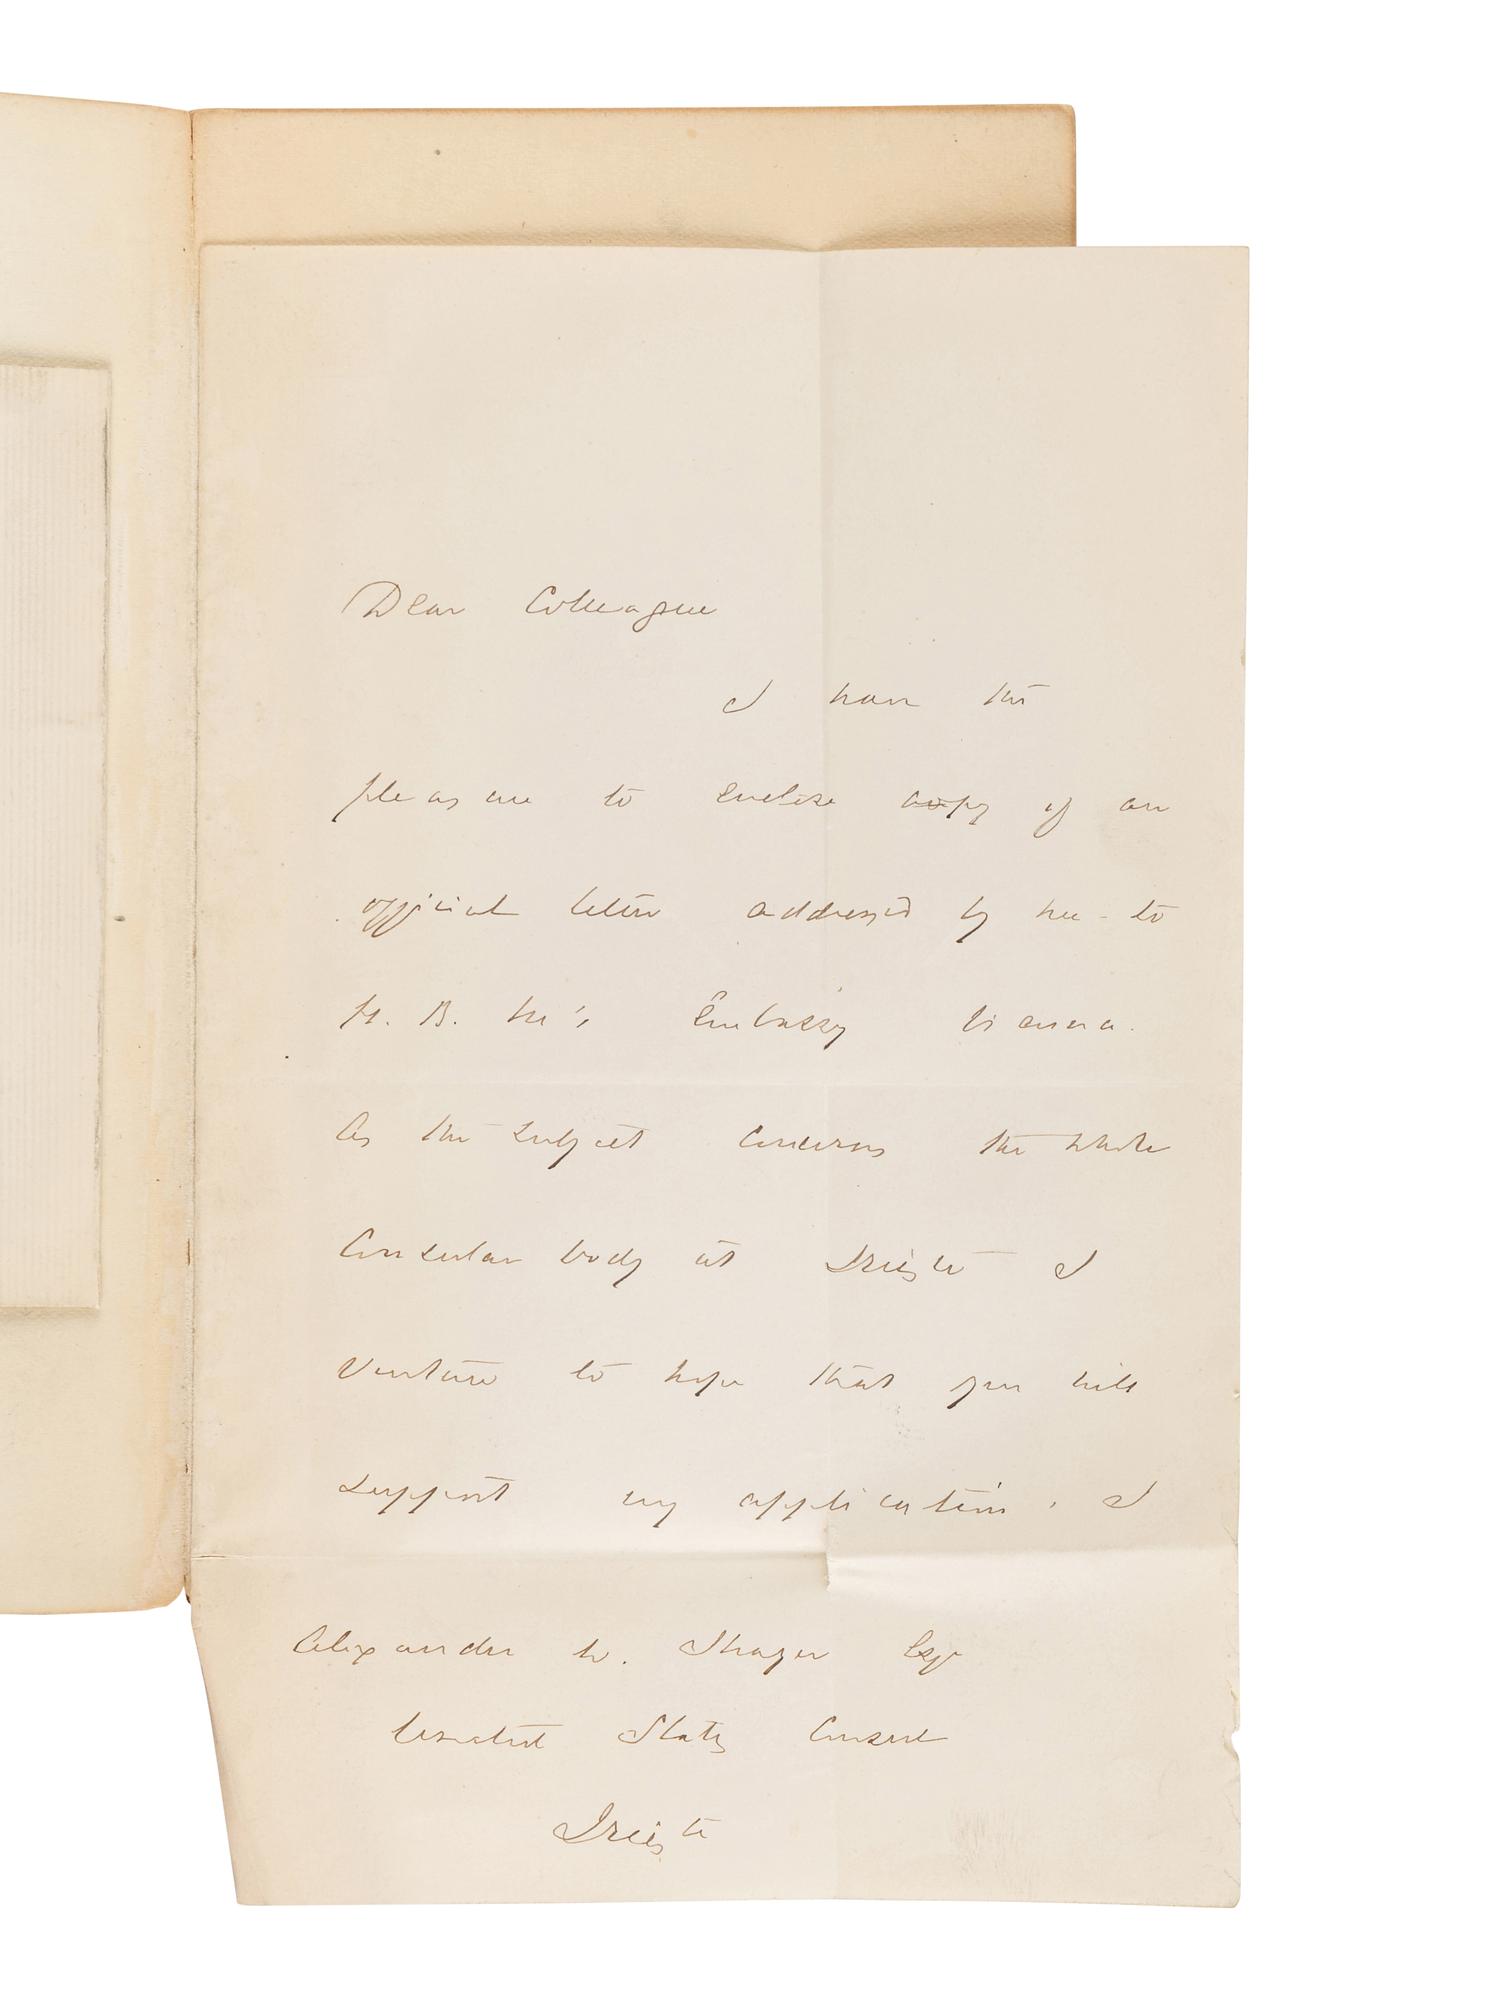 Dear Colleague
I have the
pleasure to enclose copy of an
official letter addressed by me to
H. B. M's Embassy Vienna.
As the subject concerns the whole
Consular body at Trieste I
venture to hope that you will
support my application. I
Alexander W. Thayer Esqr
United States Consul
Trieste